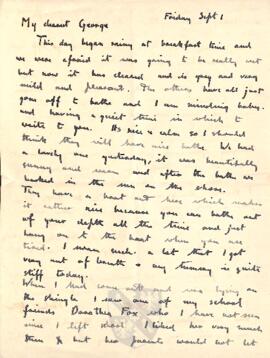 Friday Sept 1
My dearest George
This day began rainy at breakfast time and
we were afraid it was going to be really wet
but now it has cleared and its grey and very
mild and pleasant. The others have all just
gone off to bathe and I am minding baby
and having a quiet time in which to
write to you. Its nice & calm so I should
think they will have nice bathe. We had
a lovely one yesterday, it was beautifully
sunny and warm and after the bathe we
basked in the sun on the shore.
They have a boat out here which makes
it rather nice because you can bathe out
of your depth all the time and just
hang on to the boat when you are
tired. I swam such a lot that I got
very out of breath & my tummy is quite
stiff today.
When I had come out and was lying on
the shingle I saw one of my school
friends Dorothea Fox who I have not seen
since I left school I liked her very much
then & but her parents would not let